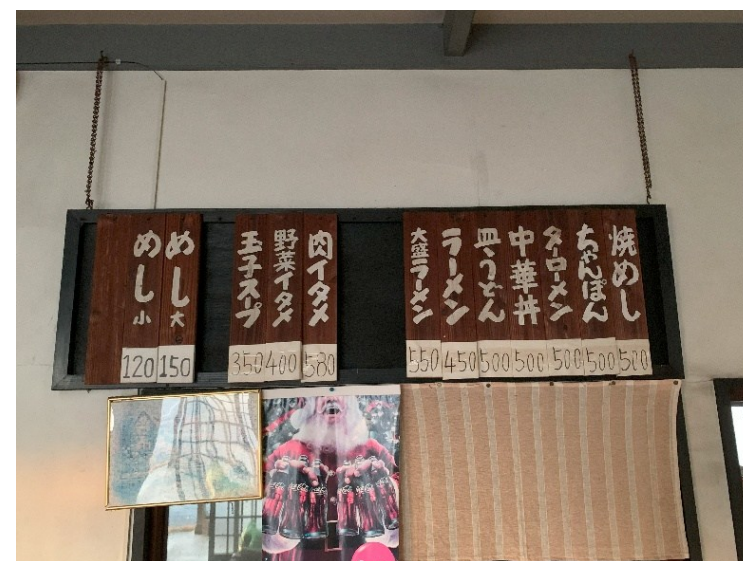 焼めし 500
ちゃんぽん 500
ターローメン 500
中華丼 500
皿うどん 500
ラーメン 450
大盛ラーメン 550
肉イタメ 580
野菜イタメ 400
玉子スープ 350
めし大 150
めし小 120
Coca-Cola